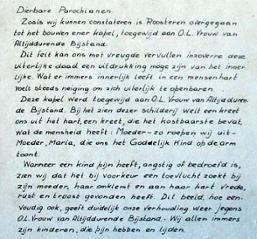 Dierbare Parochianen.
Zoals wij kunnen constateren is Roosteren overgegaan
tot het bouwen ener kapel, toegewijd aan O.L. Vrouw van
Altijddurende Bijstand.
Dit feit kan ons met vreugde vervullen inzoverre deze
uiterlijke daad een uitdrukking moge zijn van het inner
lijke. Wat er immers innerlijk leeft in een mensenhart
voelt steeds neiging om zich uiterlijk te openbaren.
Deze kapel werd toegewijd aan O.L. Vrouw van Altijdduren
de Bijstand. Bij het zien dezer schilderij welt een kreet
ons uit het hart, een kreet, die het kostbaarste bevat,
wat de mensheid heeft: Moeder - zo roepen wij uit -
Moeder, Maria, die ons het Goddelijk Kind op de arm
toont.
Wanneer een kind pijn heeft, angstig of bedroefd is,
zien wij dat hij bij voorkeur een toevlucht zoekt bij
zijn moeder, haar omklemt en aan haar hart vrede,
rust en troost gevonden heeft. Dit beeld, hoe een-
voudig ook, geeft duidelijk onze verhouding weer jegens
O.L. Vrouw van Altijddurende Bijstand. Wij allen immers
zijn kinderen, die pijn hebben en lijden.